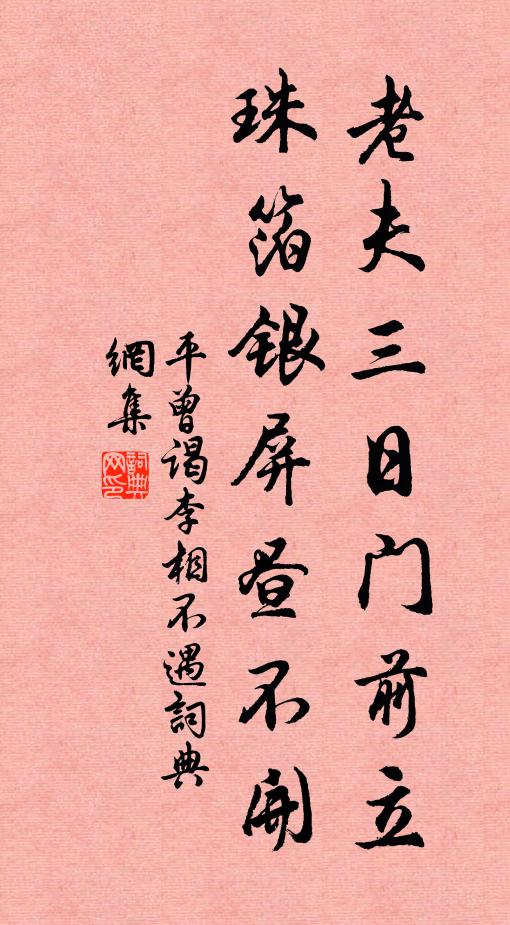 老夫三日门前立
珠箔银屏昼不開
平曾谒李相不遇詞典
網集
詞典网印